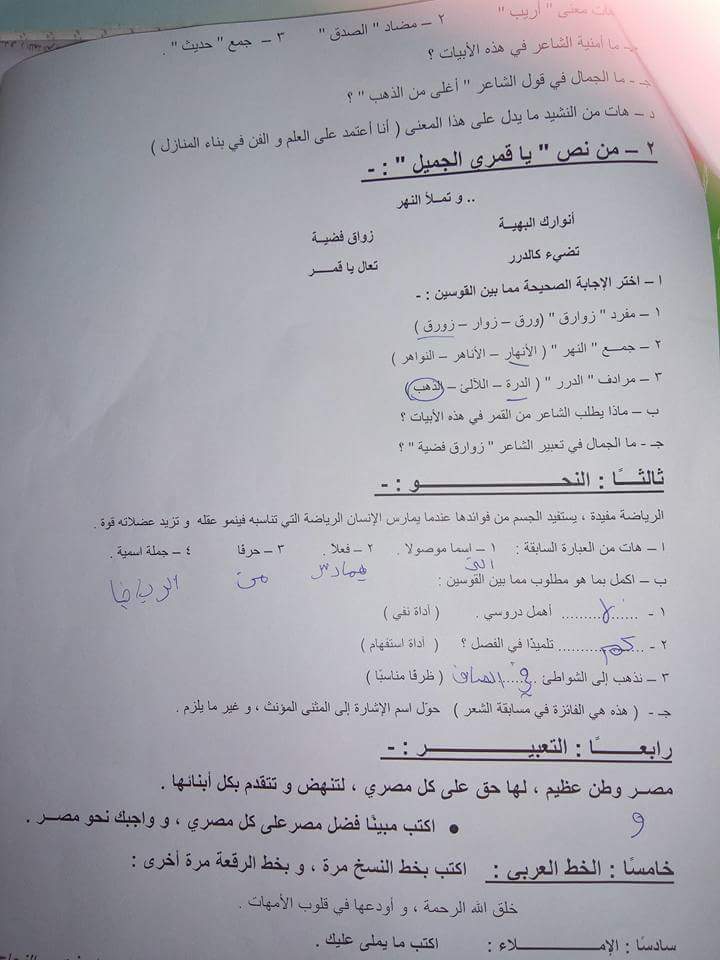 هات معنى " أريب " ٢ – مضاد " الصدق " ٣ – جمع " حديث " .
ما أمنية الشاعر في هذه الأبيات ؟
جـ - ما الجمال في قول الشاعر " أغلى من الذهب " ؟
د – هات من النشيد ما يدل على هذا المعنى ( أنا أعتمد على العلم و الفن في بناء المنازل )
٢ – من نص " يا قمرى الجميل " : -
.. و تمـلأ النهر
أنوارك البهية زواق فضيـة
تضيء كالدرر تعال يا قمــــر
ا – اختر الإجابة الصحيحة مما بين القوسين : -
١ – مفرد " زوارق " (ورق – زوار – زورق )
٢ – جمـــع " النهر " ( الأنهار – الأناهر – النواهر )
٣ – مرادف " الدرر " ( الدرة – اللآلئ – الذهب )
ب – ماذا يطلب الشاعر من القمر في هذه الأبيات ؟
جـ - ما الجمال في تعبير الشاعر " زوارق فضية " ؟
ثالثـــــًا : النحـــــــــــو : -
الرياضة مفيدة ، يستفيد الجسم من فوائدها عندما يمارس الإنسان الرياضة التي تناسبه فينمو عقله و تزيد عضلاته قوة .
ا – هات من العبارة السابقة : ١ – اسما موصولا . ٢ – فعلا . ٣ – حرفا ٤ – جملة اسمية .
التى يمارس من
ب – اكمل بما هو مطلوب مما بين القوسين :
١ - ...... لا ......... أهمل دروسي . ( أداة نفي )
٢ - ... كم .............. تلميذًا في الفصل ؟ ( أداة استفهام )
٣ – نذهب إلى الشواطئ .... في الصاف ( ظرفا مناسبًا )
جـ - ( هذه هي الفائزة في مسابقة الشعر ) حوّل اسم الإشارة إلى المثنى المؤنث ، و غير ما يلزم .
رابعـــــًا : التعبيـــــــــــر : -
مصـر وطن عظيم ، لها حق على كل مصري ، لتنهض و تتقدم بكل أبنائها .
و
• اكتب مبينًا فضل مصرعلى كل مصري ، و واجبك نحو مصـر .
خامسًا : الخط العربى : اكتب بخط النسخ مرة ، و بخط الرقعة مرة أخرى :
خلق الله الرحمة ، و أودعها في قلوب الأمهات .
سادسًا : الإمـــــــــــلاء : اكتب ما يملى عليك .